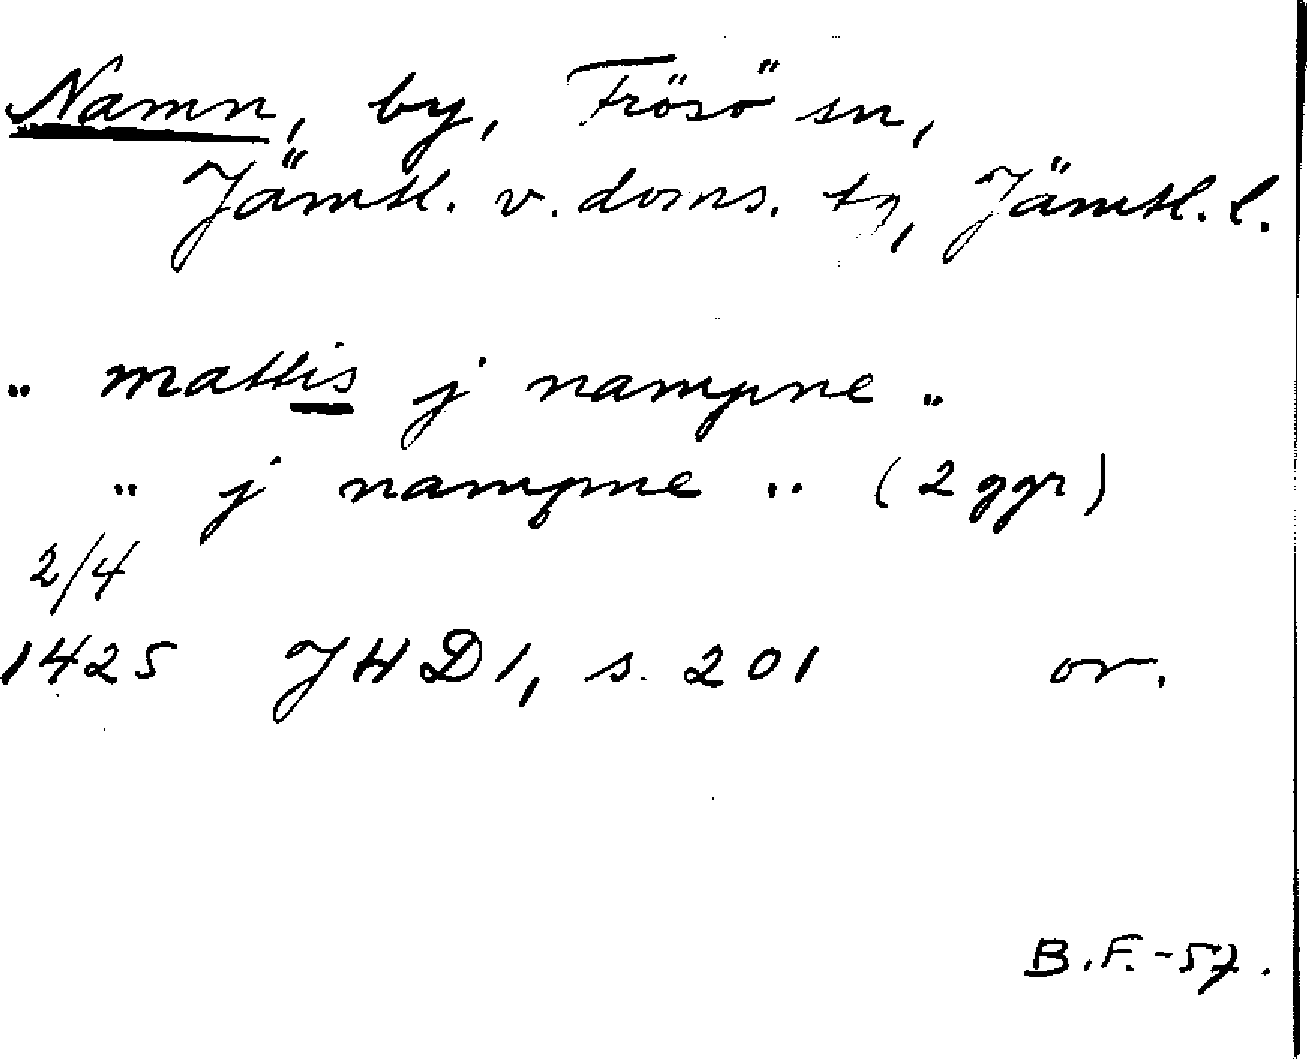 Namn, by, Frösö sn,
Jämtl. v. doms. tg, Jämtl. l.
.. mattis j nampne ..
.. j nampne .. (2 ggr)
2/4
1425 JHD1, s. 201 or.
B.F.-57.